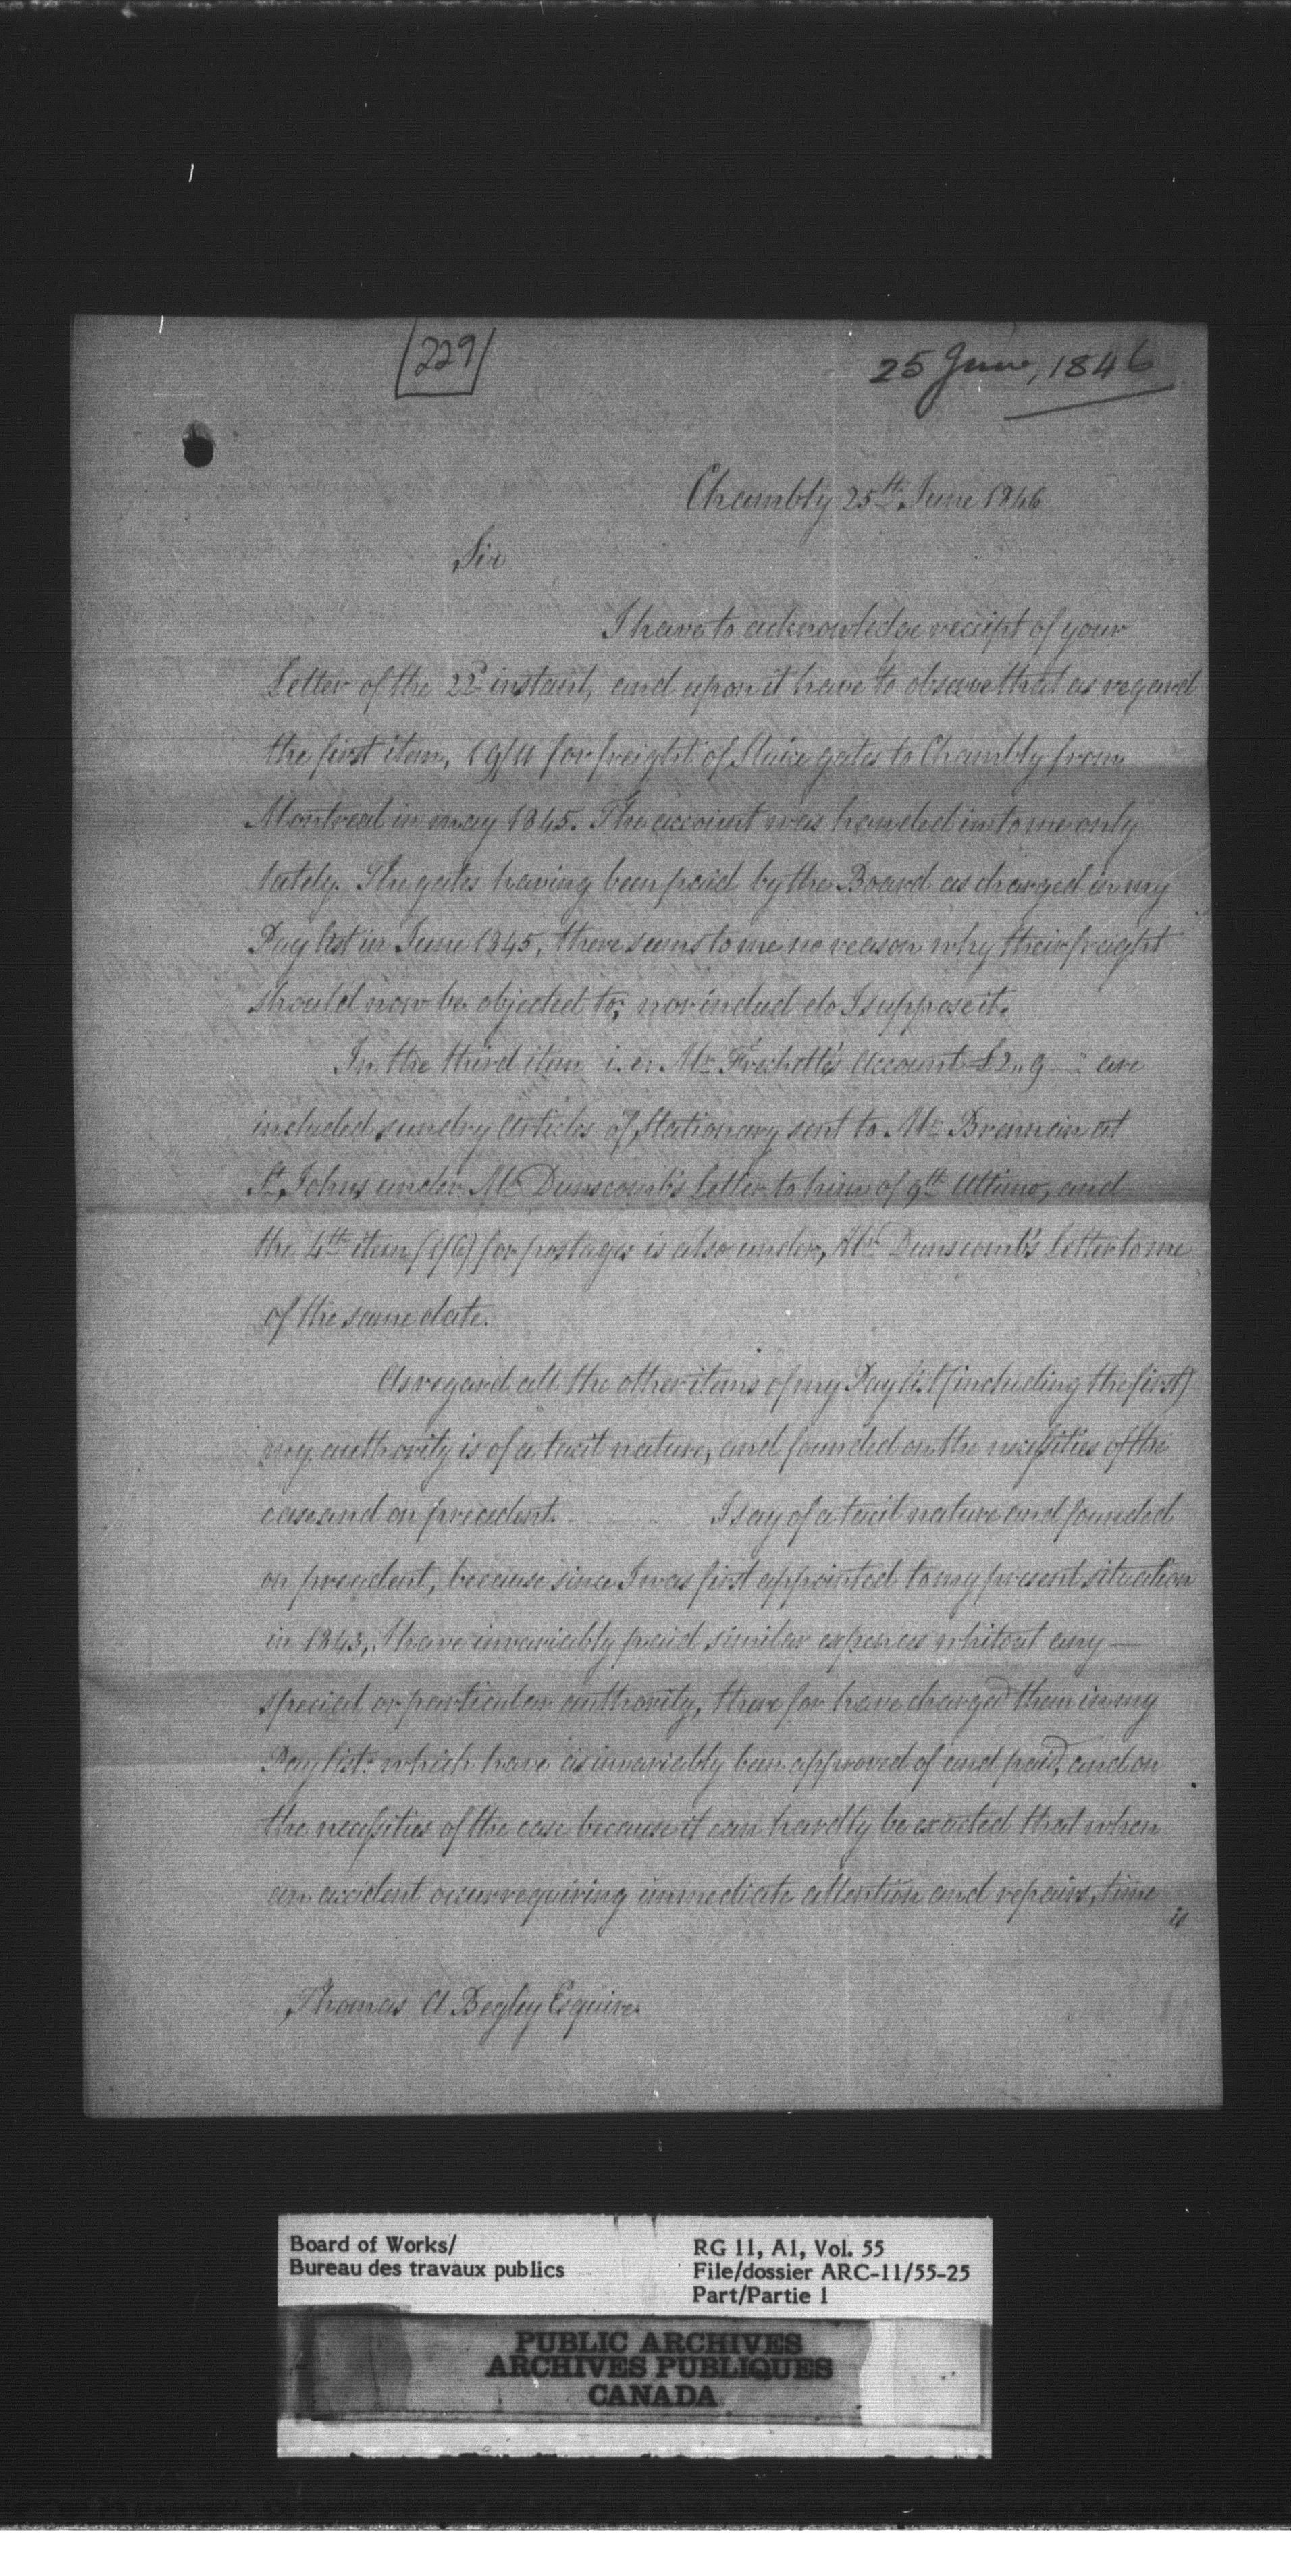 229
25 June, 1846
Chambly 25th June 1846
Sir
I have to acknowledge receipt of your
Letter of the 22d instant, and upon it have to observe that as regard
the first item, 19/11 for freight of Sluice gates to Chambly from
Montreal in may 1845. The account was handed in to me only
lately. The gates having been paid by the Board as charged in my
Pay list in June 1845, there seems to me no reason why their freight
should now be objected to; nor indeed do I suppose it.
In the third item i.e: Mr Frechette's Account £2,, 9 are
included sundry Articles of Stationary sent to Mr Brennan at
St Johns under Mr Dunscomb's Letter to him of 9th Ultimo, and
the 4th item (1/6) for postages is also under, Mr Dunscomb's Letter to me
of the same date.
As regard all the other items of my Pay list (including the first)
my authority is of a tacit nature, and founded on the necessities of the
case and on precedent. I say of a tacit nature and founded
on precedent, because since I was first appointed to my present situation
in 1843, I have invariably paid similar expences whitout any —
special or particular authority, there for have charged them in my
Pay list: which have as invariably been approved of and paid, and on
the necessities of the case because it can hardly be exacted that when
an accident occur requiring immediate attention and repairs, time
is
Thomas A Begley Esquire.
Board of Works/
Bureau des travaux publics
RG 11, A1, Vol. 55
File/dossier ARC-11/55-25
Part/Partie 1
PUBLIC ARCHIVES
ARCHIVES PUBLIQUES
CANADA